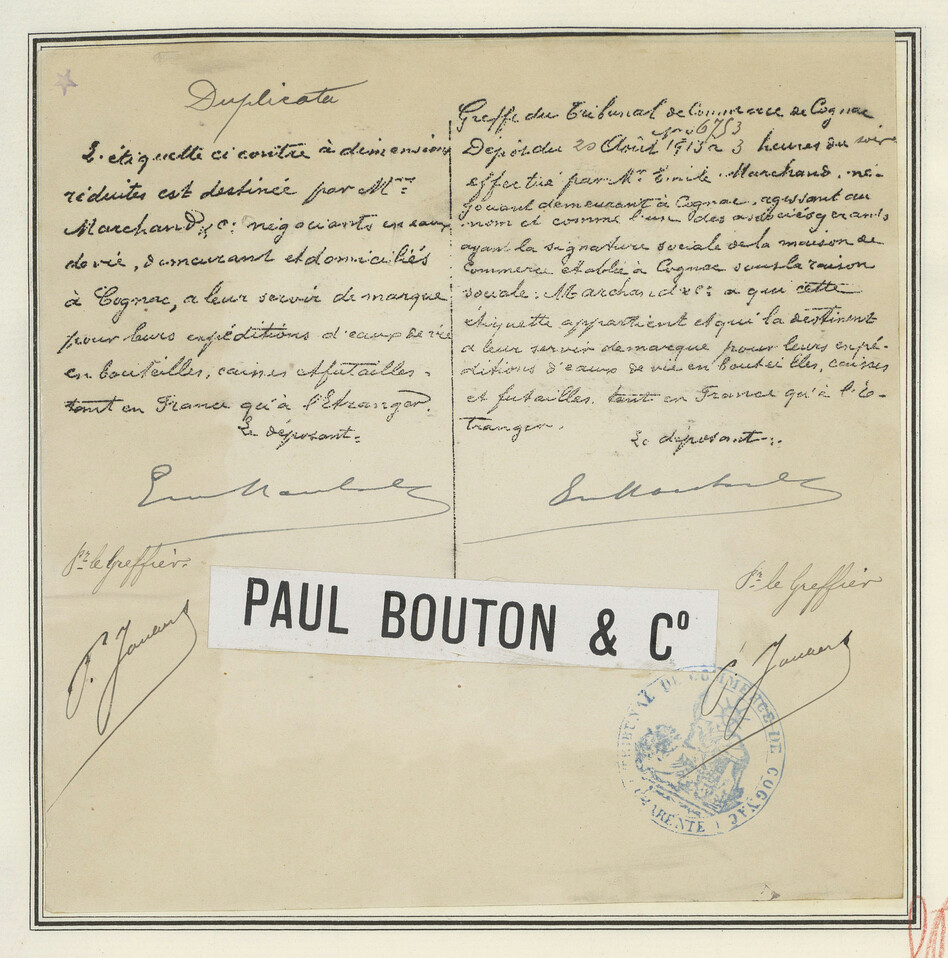 Duplicata
L'étiquette ci contre à dimensions
réduites est destinée par Mrs
Marchand & Cie négociants en eaux
de vie, demeurant et domiciliés
à Cognac, a leur servir de marque
pour leurs expéditions d'eaux de vie
en bouteilles, caisses et futailles -
tant en France qu'à l'Etranger.
Le déposant-
Pr le Greffier
Greffe du Tribunal de Commerce de Cognac
No 6753
Dépôt du 20 Août 1913 à 3 heures du soir
effectué par Mr Emile Marchand, né-
gociant demeurant à Cognac, agissant au
nom et comme l'un des associés gérants
ayant la signature sociale de la maison de
Commerce établie à Cognac sous la raison
sociale: Marchand & Cie a qui cette
étiquette appartient et qui la destinent
a leur servir de marque pour leurs expé-
ditions d'eaux de vie en bouteilles, caisses
et futailles, tant en France qu'à l'E-
tranger.
Le déposant-
Pr le Greffier
PAUL BOUTON & Co
TRIBUNAL DE COMMERCE DE COGNAC
(CHARENTE)